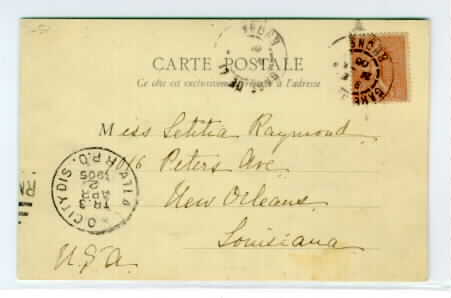 CARTE POSTALE
Ce côté est exclusivement réservé à l'adresse
Miss Letitia Raymond
4016 Peters Ave.
New Orleans
Louisiana
U.S.A.
TR. 3
APR
2
1905
R.P.O.